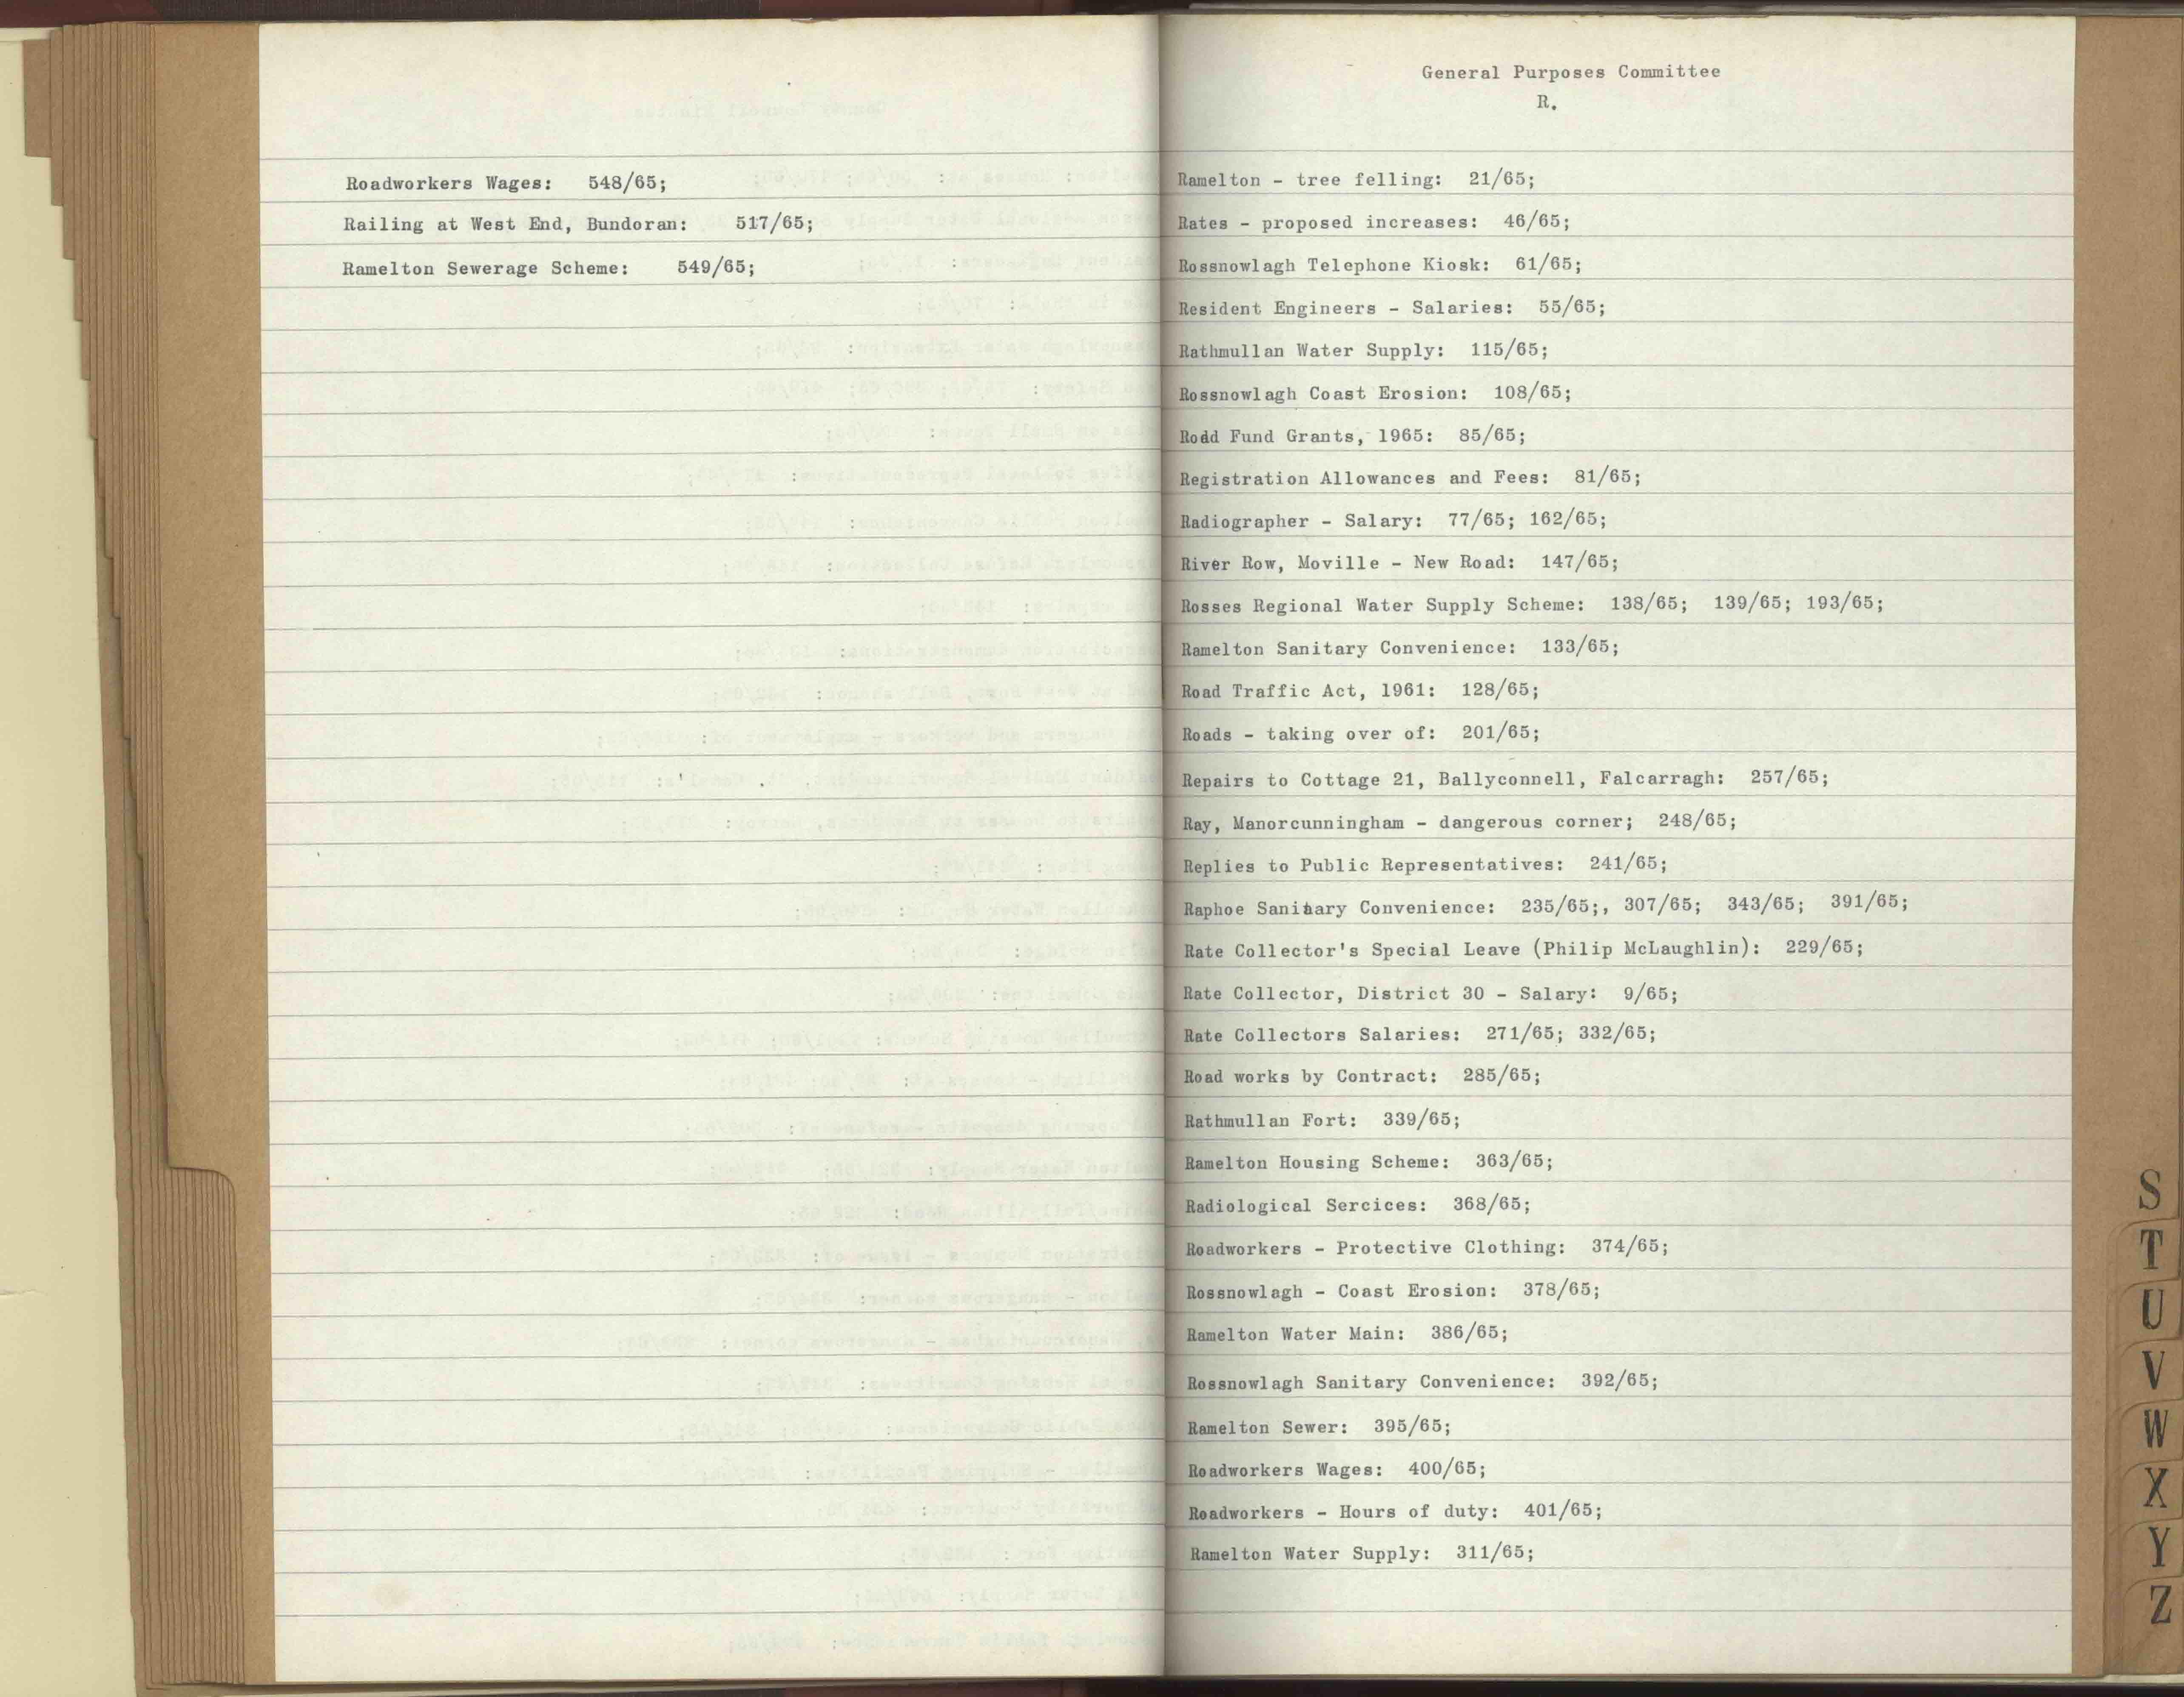 Roadworkers Wages: 548/65;
Railing at West End, Bundoran: 517/65;
Ramelton Sewerage Scheme: 549/65;
General Purposes Committee
R.
Ramelton - tree felling: 21/65;
Rates - proposed increases: 46/65;
Rossnowlagh Telephone Kiosk: 61/65;
Resident Engineers - Salaries: 55/65;
Rathmullan Water Supply: 115/65;
Rossnowlagh Coast Erosion: 108/65;
Road Fund Grants, 1965: 85/65;
Registration Allowances and Fees: 81/65;
Radiographer - Salary: 77/65; 162/65;
River Row, Moville - New Road: 147/65;
Rosses Regional Water Supply Scheme: 138/65; 139/65; 193/65;
Ramelton Sanitary Convenience: 133/65;
Road Traffic Act, 1961: 128/65;
Roads - taking over of: 201/65;
Repairs to Cottage 21, Ballyconnell, Falcarragh: 257/65;
Ray, Manorcunningham - dangerous corner; 248/65;
Replies to Public Representatives: 241/65;
Raphoe Sanitary Convenience: 235/65;, 307/65; 343/65; 391/65;
Rate Collector's Special Leave (Philip McLaughlin): 229/65;
Rate Collector, District 30 - Salary: 9/65;
Rate Collectors Salaries: 271/65; 332/65;
Road works by Contract: 285/65;
Rathmullan Fort: 339/65;
Ramelton Housing Scheme: 363/65;
Radiological Sercices: 368/65;
Roadworkers - Protective Clothing: 374/65;
Rossnowlagh - Coast Erosion: 378/65;
Ramelton Water Main: 386/65;
Rossnowlagh Sanitary Convenience: 392/65;
Ramelton Sewer: 395/65;
Roadworkers Wages: 400/65;
Roadworkers - Hours of duty: 401/65;
Ramelton Water Supply: 311/65;
S
T
U
V
W
X
Y
Z